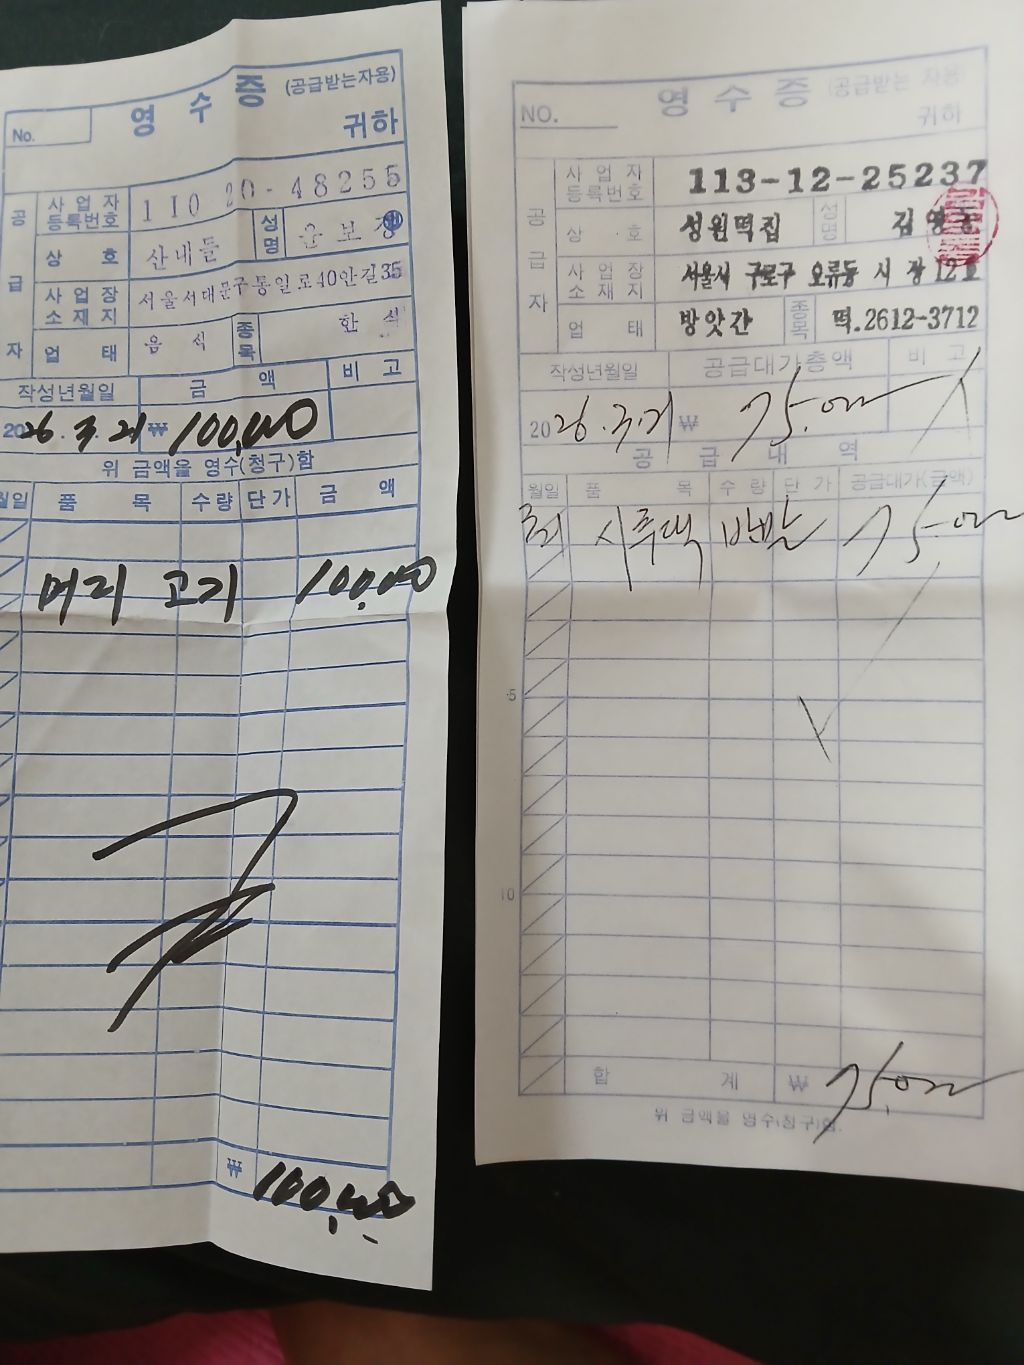 영 수 증 (공급받는자용)
No. 귀하
공 급 자
사 업 자 등록번호 110 20-48255
상 호 산내들 성명 윤보
사 업 장 소 재 지 서울서대문구통일로40안길35
업 태 음 식 종목 한 식
작성년월일 금 액 비 고
2026.3.21 ₩ 100,000
위 금액을 영수(청구)함
월일 품 목 수량 단가 금 액
머리 고기 100,000
₩ 100,000
영 수 증 (공급받는 자용)
NO. 귀하
공 급 자
사 업 자 등록번호 113-12-25237
상 호 성원떡집 성명 김영
사 업 장 소 재 지 서울시 구로구 오류동 시 장 12호
업 태 방앗간 종목 떡.2612-3712
작성년월일 공급대가총액 비 고
2026.3.21 ₩ 75,000
공 급 내 역
월일 품 목 수 량 단 가 공급대가(금액)
3.21 시루떡 반말 75,000
5
10
합 계 ₩ 75,000
위 금액을 영수(청구)함.